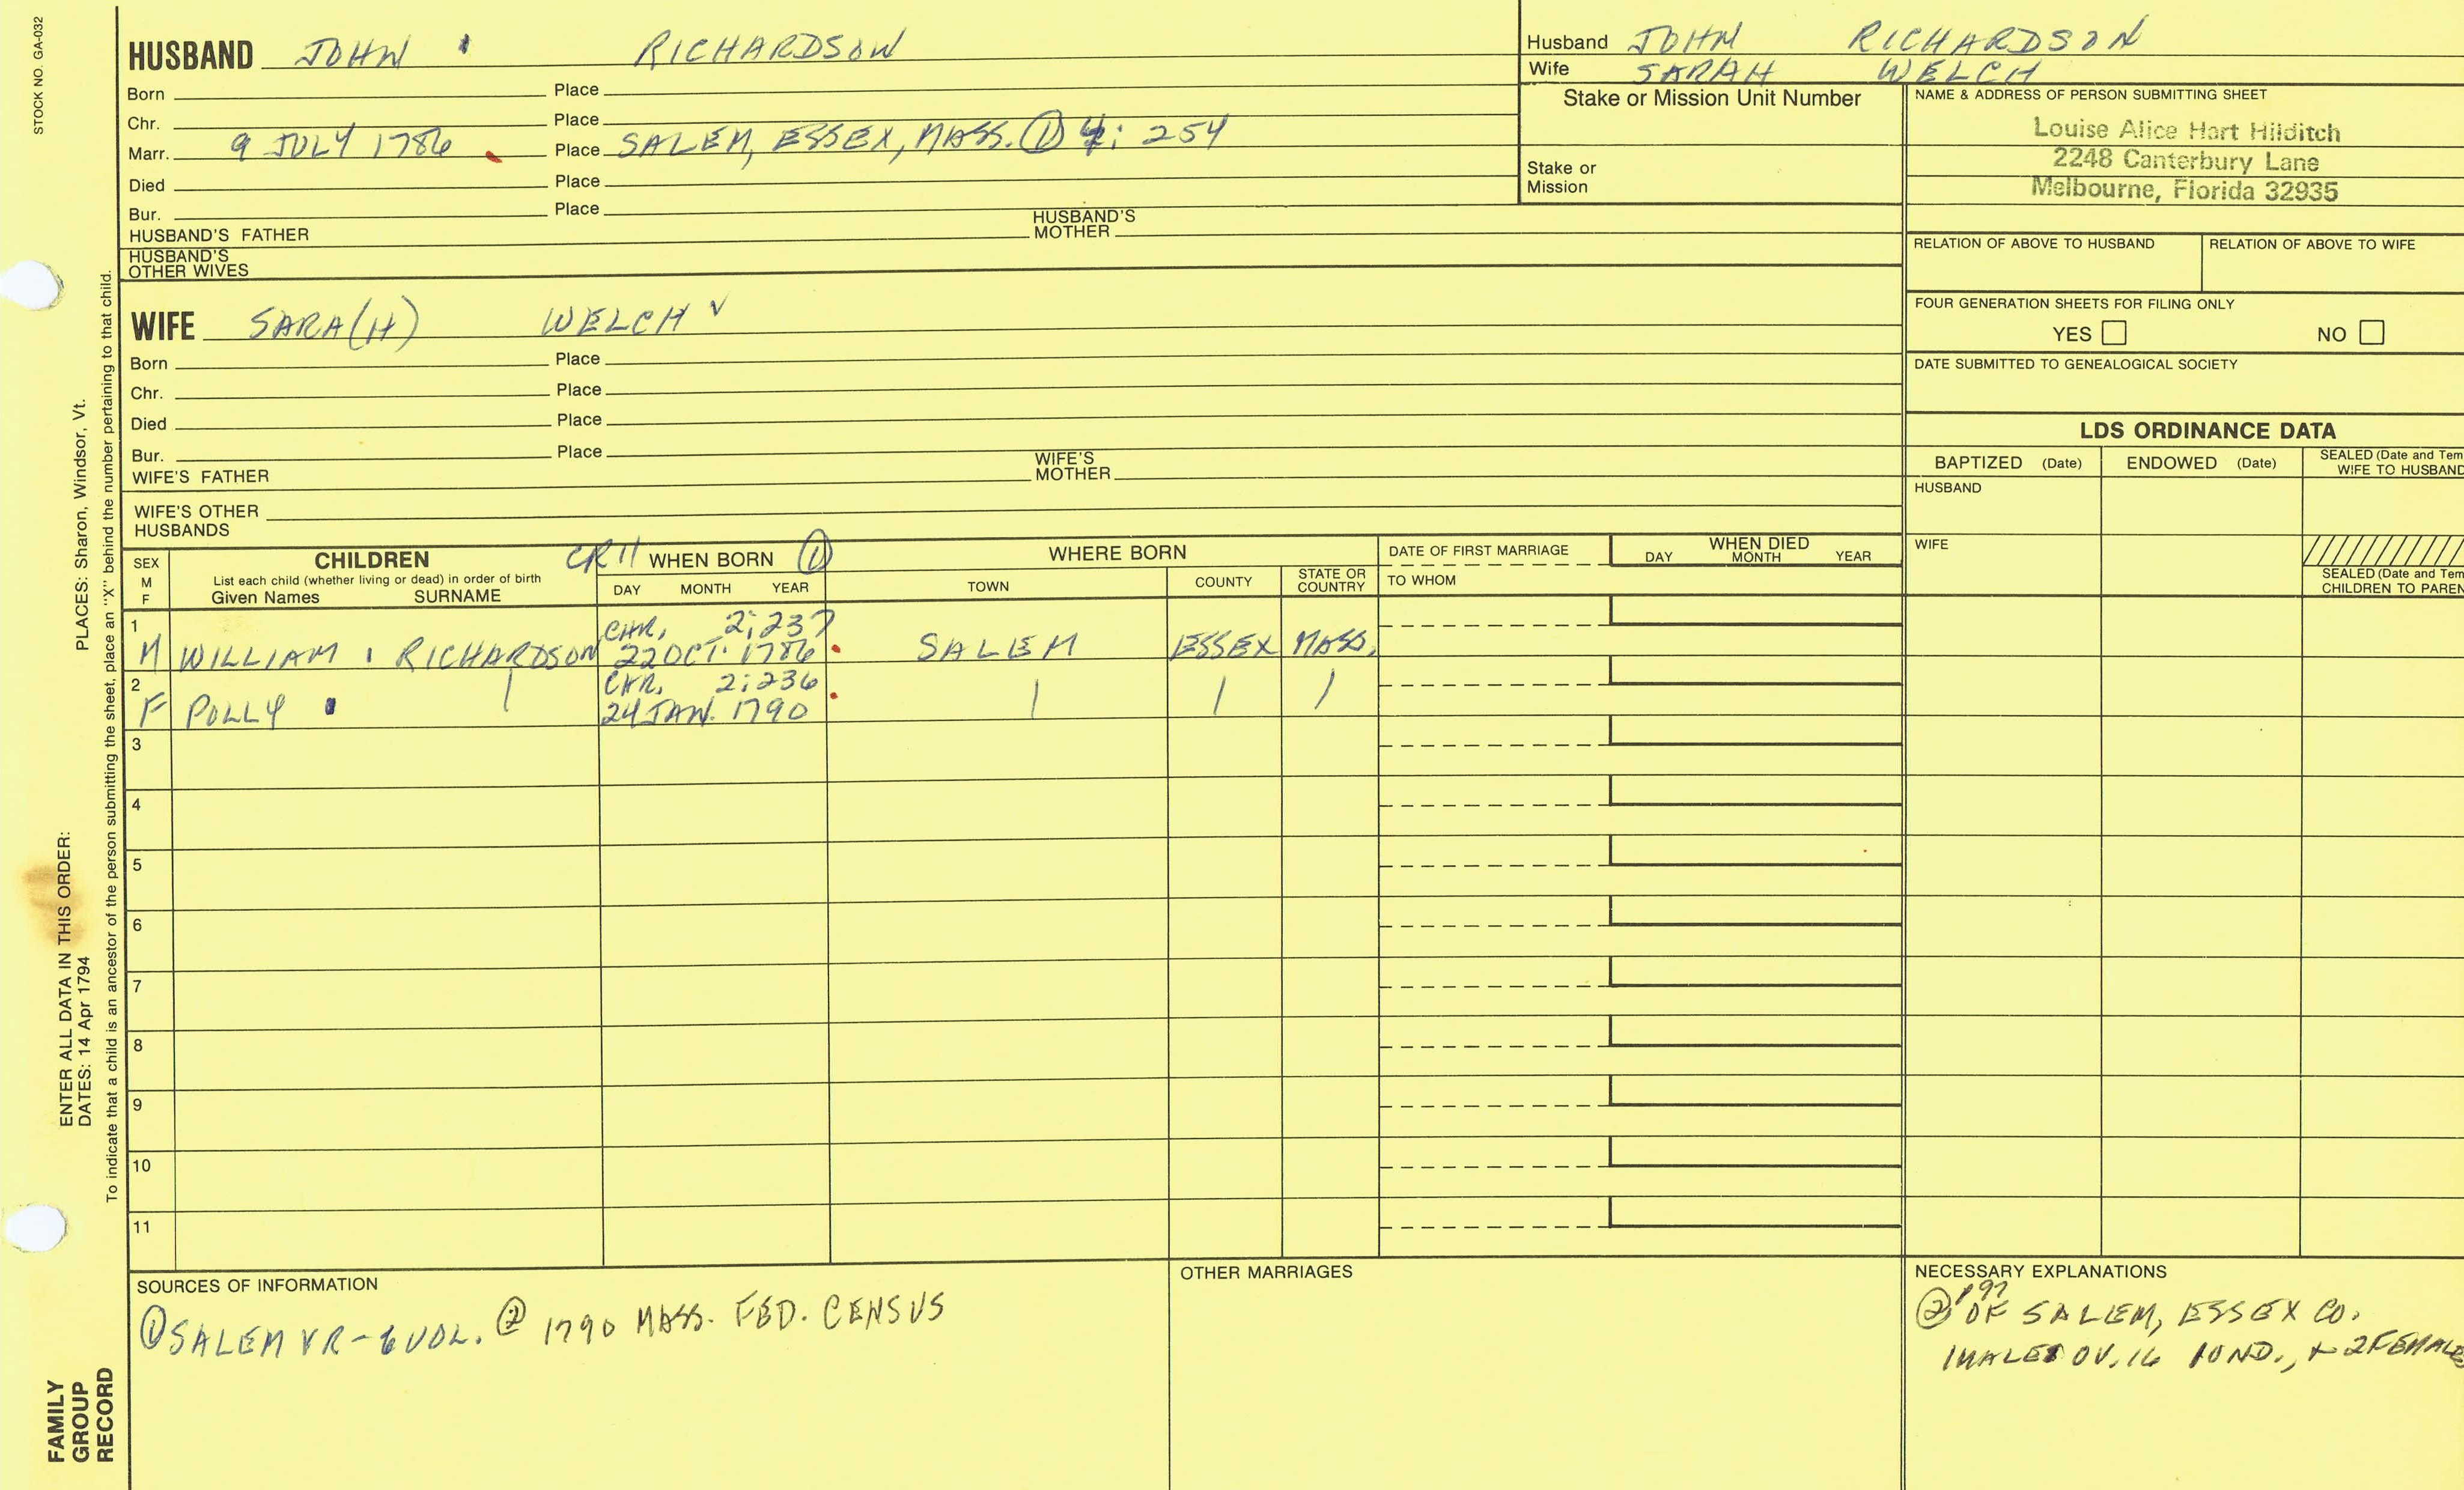 STOCK NO. GA-032
HUSBAND JOHN RICHARDSON
Born Place
Chr. Place
Marr. 9 JULY 1786 Place SALEM, ESSEX, MASS. ① 4: 254
Died Place
Bur. Place
HUSBAND'S FATHER HUSBAND'S MOTHER
HUSBAND'S OTHER WIVES
Husband JOHN RICHARDSON
Wife SARAH WELCH
Stake or Mission Unit Number
Stake or Mission
NAME & ADDRESS OF PERSON SUBMITTING SHEET
Louise Alice Hart Hilditch
2248 Canterbury Lane
Melbourne, Florida 32935
RELATION OF ABOVE TO HUSBAND RELATION OF ABOVE TO WIFE
FOUR GENERATION SHEETS FOR FILING ONLY
YES NO
DATE SUBMITTED TO GENEALOGICAL SOCIETY
WIFE SARA(H) WELCH ✓
Born Place
Chr. Place
Died Place
Bur. Place
WIFE'S FATHER WIFE'S MOTHER
WIFE'S OTHER HUSBANDS
LDS ORDINANCE DATA
BAPTIZED (Date) ENDOWED (Date) SEALED (Date and Tem
WIFE TO HUSBAND
HUSBAND
WIFE
SEALED (Date and Tem
CHILDREN TO PAREN
SEX
M
F
CHILDREN
List each child (whether living or dead) in order of birth
Given Names SURNAME
CR11 WHEN BORN ①
DAY MONTH YEAR
WHERE BORN
TOWN COUNTY STATE OR COUNTRY
DATE OF FIRST MARRIAGE
TO WHOM
WHEN DIED
DAY MONTH YEAR
1 CHR. 2:237
M WILLIAM RICHARDSON 22 OCT. 1786 SALEM ESSEX MASS.
2 CHR. 2:236
F POLLY 24 JAN. 1790
3
4
5
6
7
8
9
10
11
SOURCES OF INFORMATION
① SALEM VR - 6 VOL. ② 1790 MASS. FED. CENSUS
OTHER MARRIAGES
NECESSARY EXPLANATIONS
② P97 OF SALEM, ESSEX CO.
1 MALE OV. 16 1 UND., + 2 FEMALES
ENTER ALL DATA IN THIS ORDER:
DATES: 14 Apr 1794 PLACES: Sharon, Windsor, Vt.
To indicate that a child is an ancestor of the person submitting the sheet, place an "X" behind the number pertaining to that child.
FAMILY
GROUP
RECORD